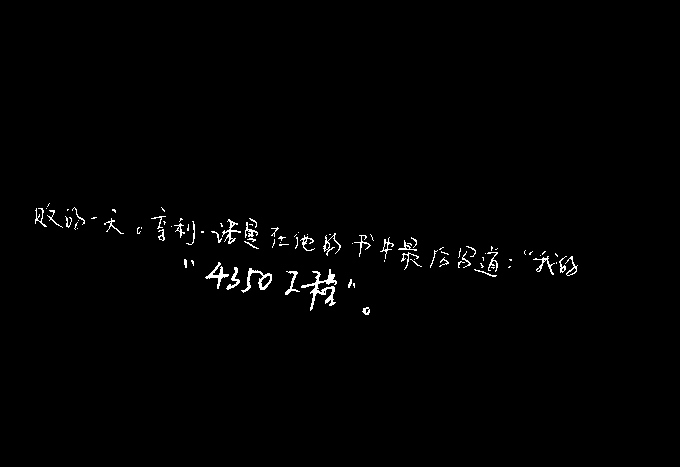 败的一天。亨利·诺曼在他的书中最后写道：“我的
“4350工程”。